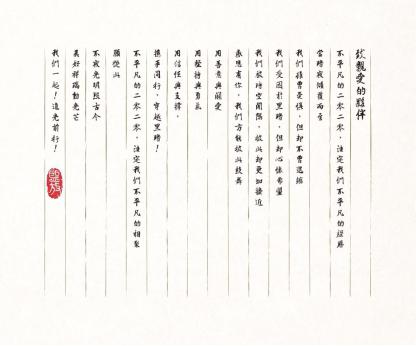 致親愛的夥伴
不平凡的二零二零，注定我們不平凡的經歷
當暗夜傾覆而至
我們雖曾受限，但卻不曾退縮
我們受困於黑暗，但卻心懷希望
我們被時空間隔，彼此卻更加接近
感恩有你，我們方能彼此鼓舞
用善意與關愛
用堅持與勇氣
用信任與支撐，
攜手同行，穿越黑暗！
不平凡的二零二零，注定我們不平凡的相聚
願從此
不夜光明照古今
美好祥瑞動光芒
我們一起！追光前行！